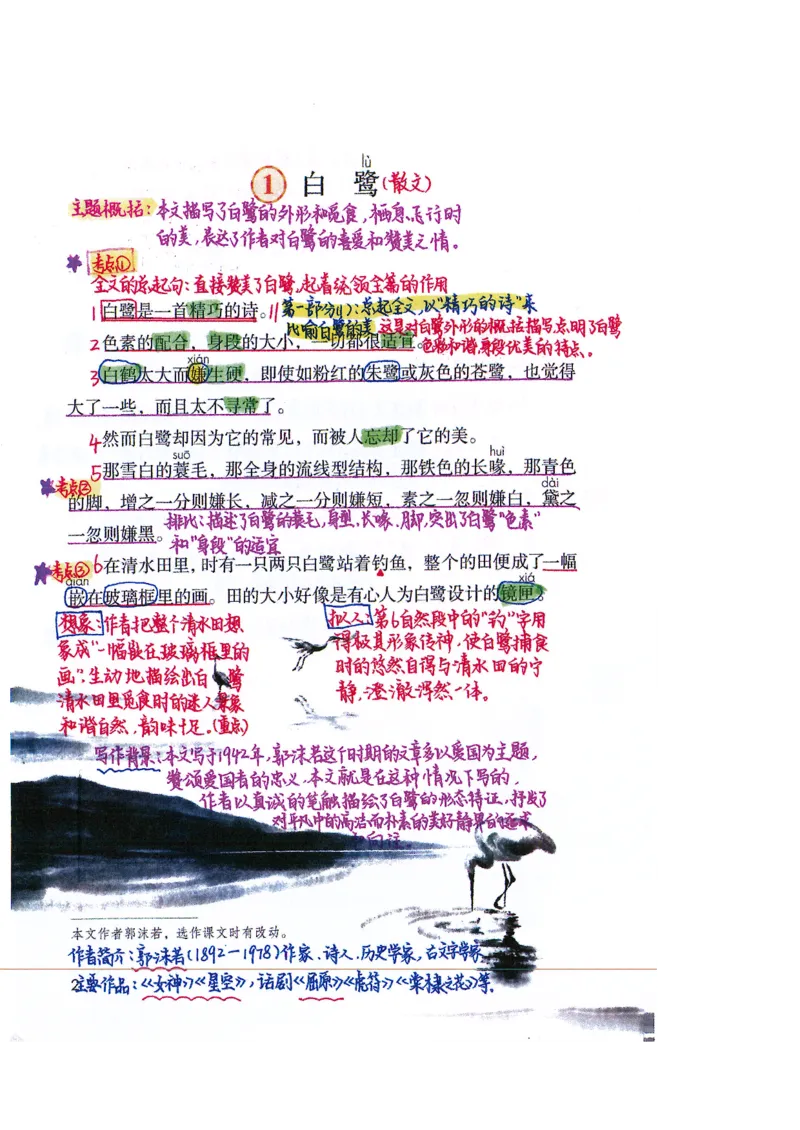 lù
① 白 鹭(散文)
主题概括:本文描写了白鹭的外形和觅食、栖息、飞行时
的美,表达了作者对白鹭的喜爱和赞美之情。
考点①
全文的总起句:直接赞美了白鹭,起着统领全篇的作用
1 白鹭是一首精巧的诗。// 第一部分(1):总起全文,以“精巧的诗”来
比喻白鹭的美
这是对白鹭外形的概括描写,点明了白鹭
2 色素的配合,身段的大小,一切都很适宜。色彩和谐、身段优美的特点。
xián
3 白鹤太大而嫌生硬,即使如粉红的朱鹭或灰色的苍鹭,也觉得
大了一些,而且太不寻常了。
4 然而白鹭却因为它的常见,而被人忘却了它的美。
suō huì
5 那雪白的蓑毛,那全身的流线型结构,那铁色的长喙,那青色
考点③ dài
的脚,增之一分则嫌长,减之一分则嫌短,素之一忽则嫌白,黛之
一忽则嫌黑。
排比:描述了白鹭的蓑毛、身型、长喙、脚,突出了白鹭“色素”
和“身段”的适宜
考点② 6 在清水田里,时有一只两只白鹭站着钓鱼,整个的田便成了一幅
qiàn xiá
嵌在玻璃框里的画。田的大小好像是有心人为白鹭设计的镜匣。
想象:作者把整个清水田想
象成“一幅嵌在玻璃框里的
画”,生动地描绘出白鹭
清水田里觅食时的迷人景象
和谐自然,韵味十足。(重点)
拟人:第6自然段中的“钓”字用
得极其形象传神,使白鹭捕食
时的悠然自得与清水田的宁
静,澄澈浑然一体。
写作背景:本文写于1942年,郭沫若这个时期的文章多以爱国为主题,
赞颂爱国者的忠义,本文就是在这种情况下写的,
作者以真诚的笔触描绘了白鹭的形态特征,抒发了
对平凡中的高洁而朴素的美好静界的追求
和向往。
本文作者郭沫若,选作课文时有改动。
作者简介:郭沫若(1892—1978)作家、诗人、历史学家,古文字学家
2主要作品:《女神》《星空》,话剧《屈原》《虎符》《棠棣之花》等。